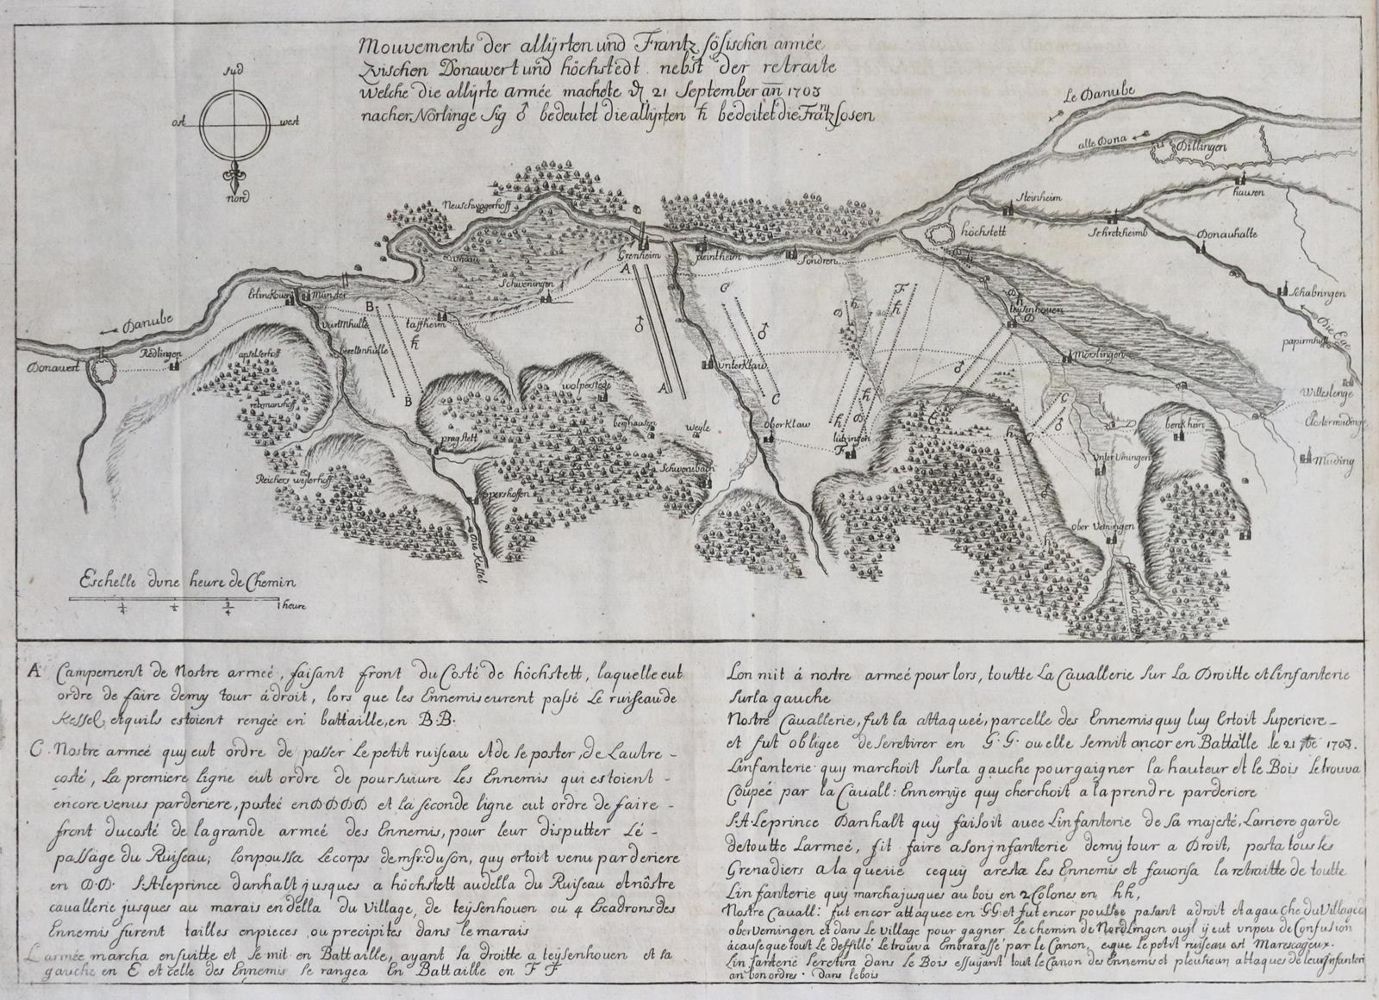 Mouvements der allÿrten und Frantzsösischen armée
Zvischen Donawert und höchstedt nebst der retraite
Welche die allÿrte armée machete 21 September añ 1703
nacher Nörlinge Sig ♂ bedeutet die allÿrten ♄ bedeitet die Frantzsosen
syd
ost
west
nord
Le Danube
alle Dona
Dillingen
hausen
Steinheim
Schretzheimb
Donauhalte
höchstett
Neuschwggerhoff
Grenheim
pleintheim
Sondren
Schabringen
Die Egg
papirmhul
Schweningen
Erlinckoven
Münster
taffheim
B
ħ
B
A
♂
A
C
♂
C
teysenhoven
Mörslingen
Danube
Donawert
Redlingen
unterKlaw
oberKlaw
lutzingen
wolperstede
berghausen
weyle
Schwenibach
pragstett
Reichers wylerhoff
oppershofen
die Kessel
unter Umingen
ober Vemingen
berckhein
Witteslenge
Müding
Eschelle dune heure de Chemin
1/4 1/2 3/4 1 heure
A Campement de Nostre armeé, faisant front du Costé de höchstett, laquelle eut
ordre de faire demy tour ádroit, lors que les Ennemis eurent passé Le ruiseau de
Kessel, etquils estoient rengée en battaille, en B.B.
C. Nostre armeé quy eut ordre de passer Le petit ruiseau et de se poster, de Lautre -
costé, La premiere Ligne eut ordre de poursuivre Les Ennemis qui estoient -
encore venus parderiere, posteé en D D D D et la seconde ligne eut ordre de faire -
front ducosté de lagrande armeé des Ennemis, pour leur disputter Lé -
passage du Ruiseau; lonpoussa Le corps demsr: duson, quy ertoit venu parderiere
en D.D. S.A leprince danhalt jusques a höchstett audella du Ruiseau et nôstre
cauallerie jusques au marais endella du Village, de teÿsenhouen ou 4 Escadrons des
Ennemis furent tailles enpieces ou precipités dans le marais
L armée marcha ensuitte et Se mit en Battaille, ayant sa droitte a teÿsenhouen et sa
gauche en E et celle des Ennemis Se rangea En Battaille en F F
Lon mit á nostre armeé pour lors, toutte La Cavallerie Sur La Droitte et Linfanterie
Surla gauche
Nostre Cavallerie, fut la attaqueé, parcelle des Ennemis quy luy Ertoit Superiere -
et fut obligee de Seretirer en G.G. ou elle Semit ancor en Battalle le 21 7bre 1703.
Linfanterie quy marchoit Surla gauche pourgaigner la hauteur et le Bois Se trouva
Coupeé par la Cavall: Ennemije quy cherchoit a la prendre parderiere
S.A. Leprince Danhalt quÿ faisoit avec Linfanterie de Sa majesté, Lariere garde
de toutte Larmeé, fit faire asonjnfanterie demÿ tour a Droit, posta tous les
Grenadiers a la queüé cequÿ aresta les Ennemis et favorisa la retraitte de toutte
Linfanterie quÿ marcha jusques au bois en 2 Colones en hh,
Nostre Cavall: fut encor attaquee en GG et fut encor poussee pasant a droit et a gauche du Village
oberVemingen et dans Le Village pour gagner Le chemin de Nordlingen ouÿl ÿ eut unpeu de Confusion
ácause que tout Le deffillé Le trouva Embarassé par le Canon, et que Le petit ruiseau est Marescageux.
Linfanterie Seretira dans Le Bois essuÿant tout le Canon des Ennemis et pleusieurs attaques de leur jnfanteri
en bon ordres. dans lebois